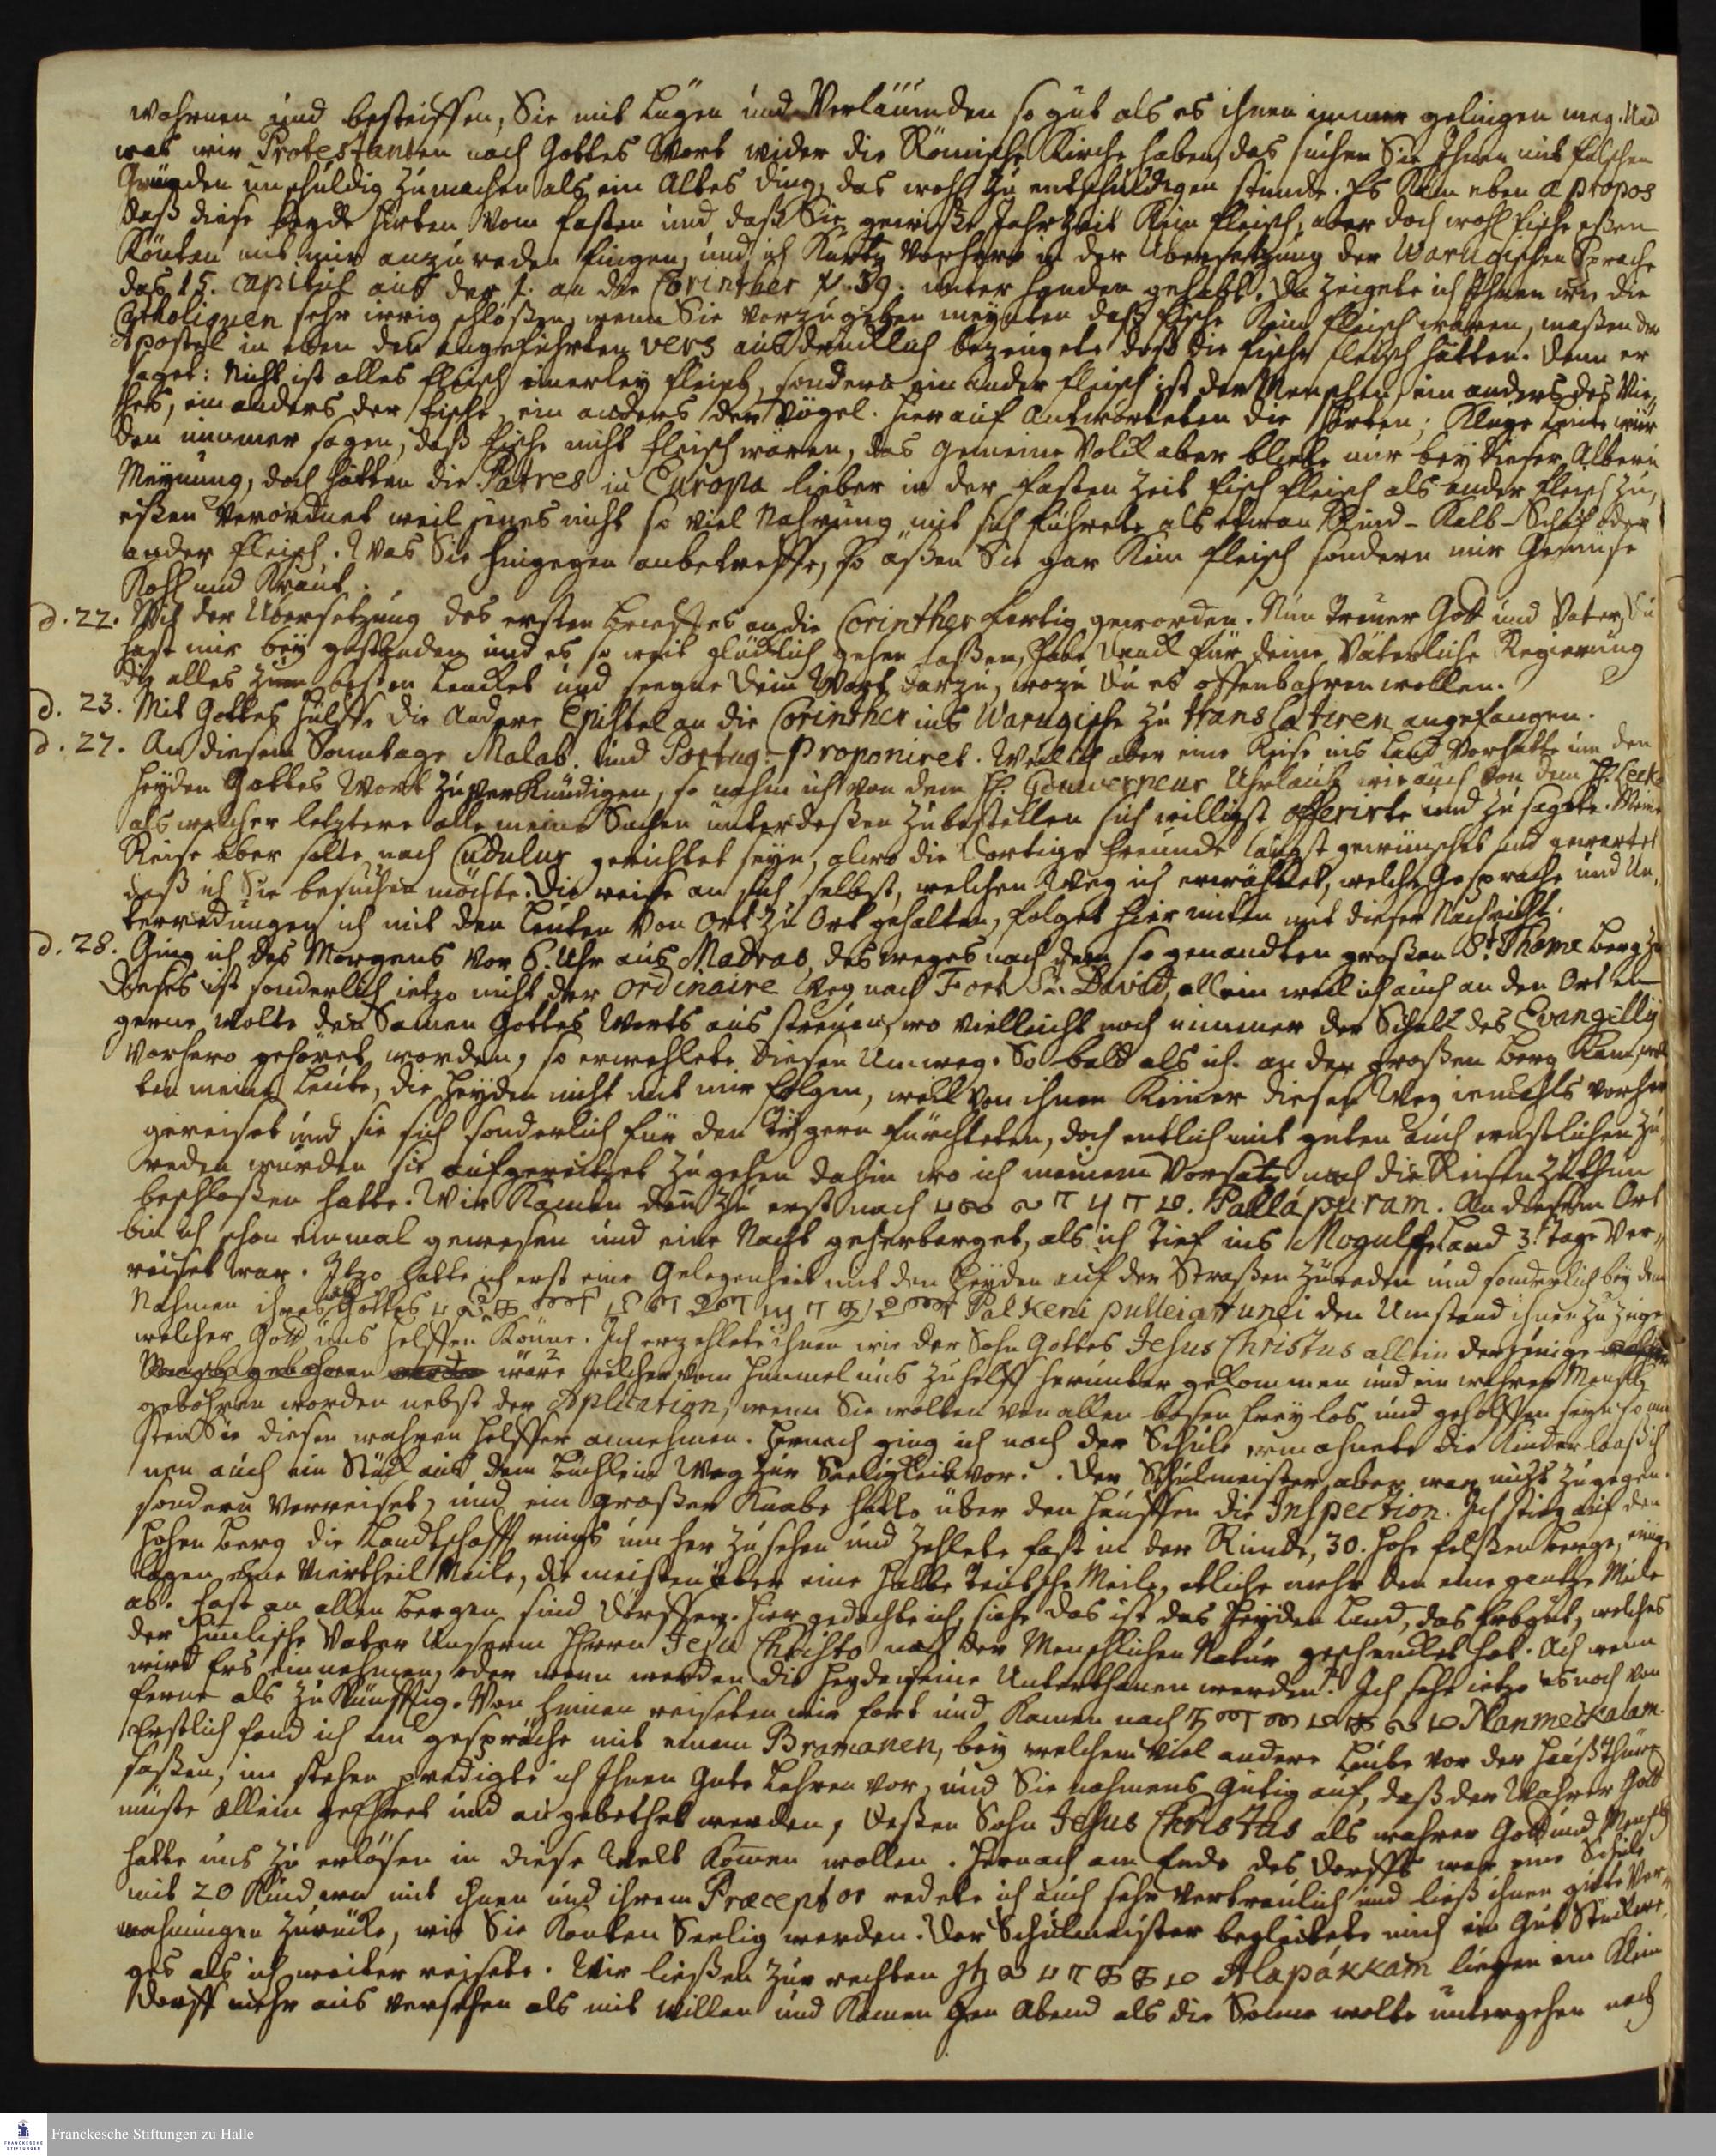 wahrnen und besteiffen, Sie mit Lügen und Verläumden so gut als es ihnen immer gelingen mag. Und
was wir Protestanten nach Gottes Wort wider die Römische Kirche haben, das suchen Sie Ihnen mit falschen
Gründen unschuldig zu machen als ein Altes Ding, das wohl zu entschuldigen stünde. Es kam eben apropos
daß diese beyde Hirten vom fasten und daß Sie gewiße Jahrzeit kein fleisch, aber doch wohl fische eßen
könten mit mir anzureden fingen, und ich kurtz vorhero in der Übersetzung der Warugischen Sprache
das 15. Capitul aus der 1. an die Corinther v. 39. unter handen gehabt. Da zeigete ich Ihnen wie die
Catholiquen sehr irrig schlößen, wenn Sie vorzugeben meynten daß fische kein fleisch wären, maßen der
Apostel in eben den angeführten vers ausdrucklich bezeugete daß die fische fleisch hätten. Denn er
saget: Nicht ist alles fleisch einerley fleisch, sondern ein ander fleisch ist der Menschen, ein anders des Vie-
hes, ein anders der fische, ein anders der Vögel. Hierauf Antworteten die; Kluge Leute wür
den nimmer sagen, daß fische nicht fleisch wären, das gemeine Volck aber bliebe nur bey dieser Albern
Meynung, doch hätten die Patres in Europa lieber in der fasten Zeit fisch fleisch als ander fleisch zu
eßen verordnet weil jenes nicht so viel Nahrung mit sich führete als etwan Rind- Kalb- Schaf oder
ander fleisch. Was Sie hingegen anbetreffe, so äßen Sie gar kein fleisch sondern nur Gemüse
Kohl und Kraut.
d. 22. Mit der Übersetzung des ersten briefes an die Corinther fertig geworden. Nun Treuer Gott und Vater, Du
hast mir bey gestanden und es so weit glücklich gehen laßen, habe Danck für deine Väterliche Regierung
die alles zum besten lencket und seegne dein Wort darzu, wozu du es offenbahren wollen.
d. 23. Mit Gottes hülffe die Andere Epistel an die Corinther ins Warugische zu translatiren angefangen.
d. 27. An diesem Sonntage Malab. und Portug. proponiret. Weil ich aber eine Reise ins Land vorhatte um den
Heyden Gottes Wort zu verkündigen, so nahm ich von dem H. Gouverneur Uhrlaub wie auch von dem H.
als welcher letztere alle meine Sachen unterdeßen zu bestellen sich willigst offerirte und zu sagte. Meine
Reise aber solte nach Cudulur gerichtet seyn, alwo die dortige freunde längst gewünschet und gewartet
daß ich Sie besuchen möchte. Die reise an sich selbst, welchen Weg ich erwählet, welche Gespräche und Un-
terredungen ich mit den Leuten von Ort zu Ort gehalten, folget hier unten mit dieser Nachricht.
d. 28. Ging ich des Morgens vor 6. Uhr aus Madras, des weges nach dem so genandten großen St. Thomæ berg zu
Dieses ist sonderlich ietzo nicht der ordinaire Weg nach Fort St. David, allein weil ich auch an den Orten
gerne wolte den Samen Gottes Worts aus streuen, wo vielleicht noch nimmer der Schall des Evangelij
vorhero gehöret worden, so erwehlete diesen Umweg. So bald als ich an den großen berg kam, wol
ten meine Leute, die Heyden nicht mit mir folgen, weil von ihnen keiner diesen Weg iemahls vorher
gereiset und sie sich sonderlich für den Tygern fürchteten, doch entlich mit guten auch ernstlichen zu
reden wurden sie aufgeritzet zu gehen dahin wo ich meinem Vorsatz nach die Reise zu thun
beschloßen hatte. Wir kamen den zu erst nach Pallápuram. An diesem Ort
bin ich schon einmal gewesen und eine Nacht geherberget, als ich tief ins Mogulsche Land 3. tage ver-
reiset war. Itzo hatte ich erst eine Gelegenheit mit den Heyden auf der Straßen zu reden und sonderlich bey dem
Nahmen ihres Gottes Palkeni pulleiattunei den Umstand ihnen zu zeigen
welcher Gott uns helffen könne. Ich erzehlete ihnen wie der Sohn Gottes Jesus Christus allein derjenige
wäre welcher vom Himmel uns zu helff herunter gekommen und ein wahrer Mensch
gebohren worden nebst der Aplication, wenn Sie wolten von allen bösen frey los und geholffen seyn so mü
sten Sie diesen wahren Helffer annehmen. Hernach ging ich nach der Schule ermahnete die Kinder laaß ih
nen auch ein Stück aus dem büchlein Weg zur Seeligkeit vor. Der Schulmeister aber war nicht zugegen
sondern verreiset, und ein großer Knabe hatte über den hauffen die Inspection. Ich stieg auf den
hohen berg die Landtschafft rings um her zu sehen und zehlete fast in der Runde, 30. hohe felßen berge, einige
lagen eine Viertheil Meile, die meisten aber eine halbe Teutsche Meile, etliche mehr den eine gantze Meile
ab. Fast an allen bergen sind dörffer. Hier gedachte ich, siehe das ist das Heyden Land, das Erbgut, welches
der himlische Vater Unserm Herrn Jesu Christo nach der Menschlichen Natur geschencket hat. Ach wenn
wird Ers einnehmen, oder wenn werden die Heyden seine Unterthanen werden? Ich sehe ietzo es noch von
ferne als zu künfftig. Von hinnen reiseten wir fort und kamen nach Nanmeikalam.
Erstlich fand ich ein gespräche mit einem Bramanen, bey welchem viel andere Leute vor der Haußthüre
saßen, im stehen predigte ich Ihnen Gute Lehren vor, und Sie nahmens Gütig auf, daß der Wahrer Gott
müste allein geEhret und angebethet werden, deßen Sohn Jesus Christus als wahrer Gott und Mensch
hatte uns zu erlösen in diese Welt kommen wollen. Hernach am Ende des dorffs war eine Schule
mit 20 Kindern mit ihnen und ihrem Præceptor redete ich auch sehr vertraulich und ließ ihnen gute Ver-
mahnungen zurücke, wie Sie konten Seelig werden. Der Schulmeister begleitete mich ein Gut Stück we-
ges als ich weiter reisete. Wir ließen zur rechten Alapákkam liegen ein klein
dorff mehr aus versehen als mit willen und kamen gen Abend als die Sonne wolte untergehen nach
Franckesche Stiftungen zu Halle